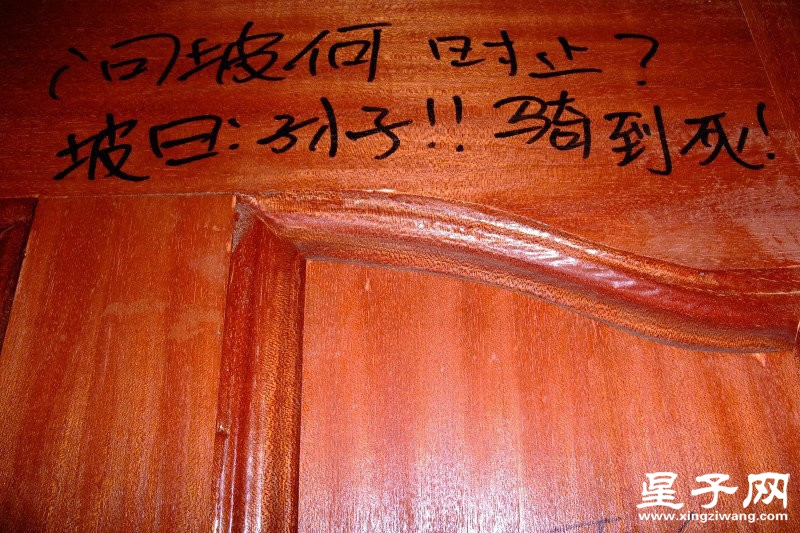 问坡何时止？
坡曰:孙子!!骑到死!
星子网
www.xingziwang.com